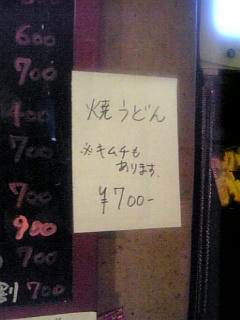 600
700
400
700
700
900
700
割 700
焼うどん
※キムチも
あります。
¥700-